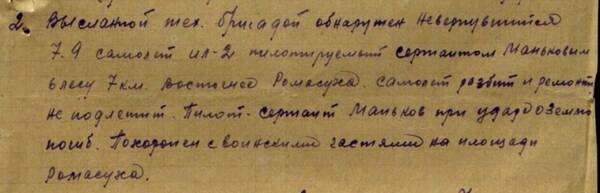 2. Высланной тех. бригадой обнаружен невернувшийся
7.9 самолет ил-2 пилотируемый сержантом Маньковым
в лесу 7км. восточнее Ромасуха. самолет разбит и ремонту
не подлетит. Пилот-сержант Маньков при ударе о землю
погиб. Похоронен с воинскими частями на площади
Ромасуха.